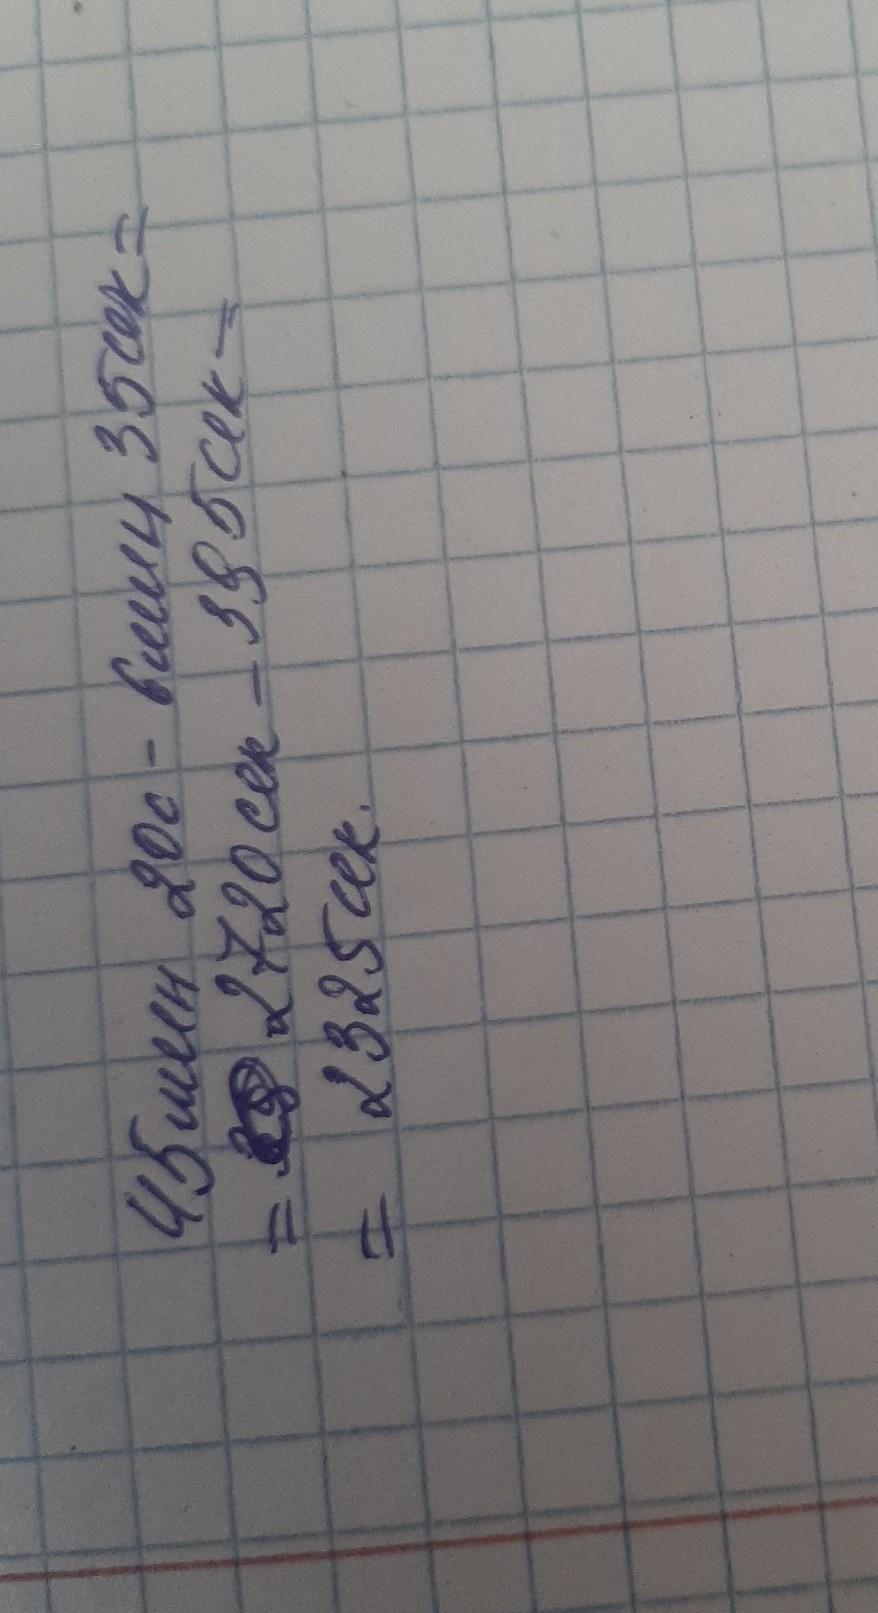 45мин 20с - 6мин 35сек =
= 2720сек - 395сек =
= 2325сек.